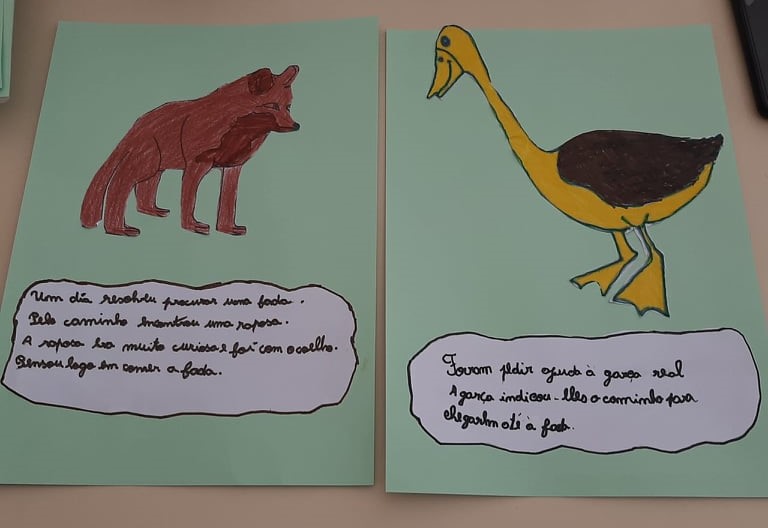 Um dia resolveu procurar uma fada.
Pelo caminho encontrou uma raposa.
A raposa era muito curiosa e foi com o coelho.
Pensou logo em comer a fada.
Foram pedir ajuda à garça real
A garça indicou-lhes o caminho para
chegarem até à fada.